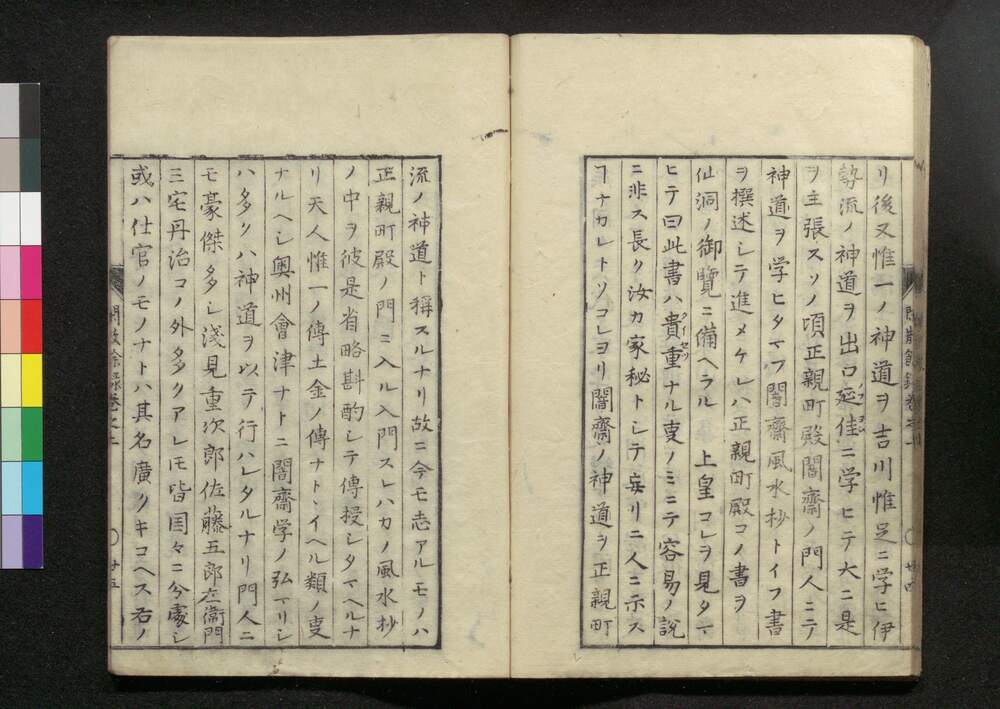 リ後又惟一ノ神道ヲ吉川惟足ニ学ヒ伊
勢流ノ神道ヲ出口延佳ニ学ヒテ大ニ是
ヲ主張スソノ頃正親町殿闇齋ノ門人ニテ
神道ヲ学ヒタマフ闇齋風水抄トイフ書
ヲ撰述シテ進メケレハ正親町殿コノ書ヲ
仙洞ノ御覽ニ備ヘラル 上皇コレヲ見タマ
ヒテ曰此書ハ貴重ナル叓ノミニテ容易ノ説
ニ非ス長ク汝カ家秘トシテ妄リニ人ニ示ス
ヿナカレトソコレヨリ闇齋ノ神道ヲ正親町
流ノ神道ト稱スルナリ故ニ今モ志アルモノハ
正親町殿ノ門ニ入ル入門スレハカノ風水抄
ノ中ヲ彼是省略斟酌シテ傳授シタマヘルナ
リ天人惟一ノ傳土金ノ傳ナトヽイヘル類ノ叓
ナルヘシ奥州會津ナトニ闇齋学ノ弘マリシ
ハ多クハ神道ヲ以テ行ハレタルナリ門人ニ
モ豪傑多シ淺見重次郎佐藤五郎左衞門
三宅丹治コノ外多クアレ𪜈皆国々ニ分處シ
或ハ仕官ノモノナトハ其名廣クキコヘス右ノ
閒散餘録卷之上
廿五